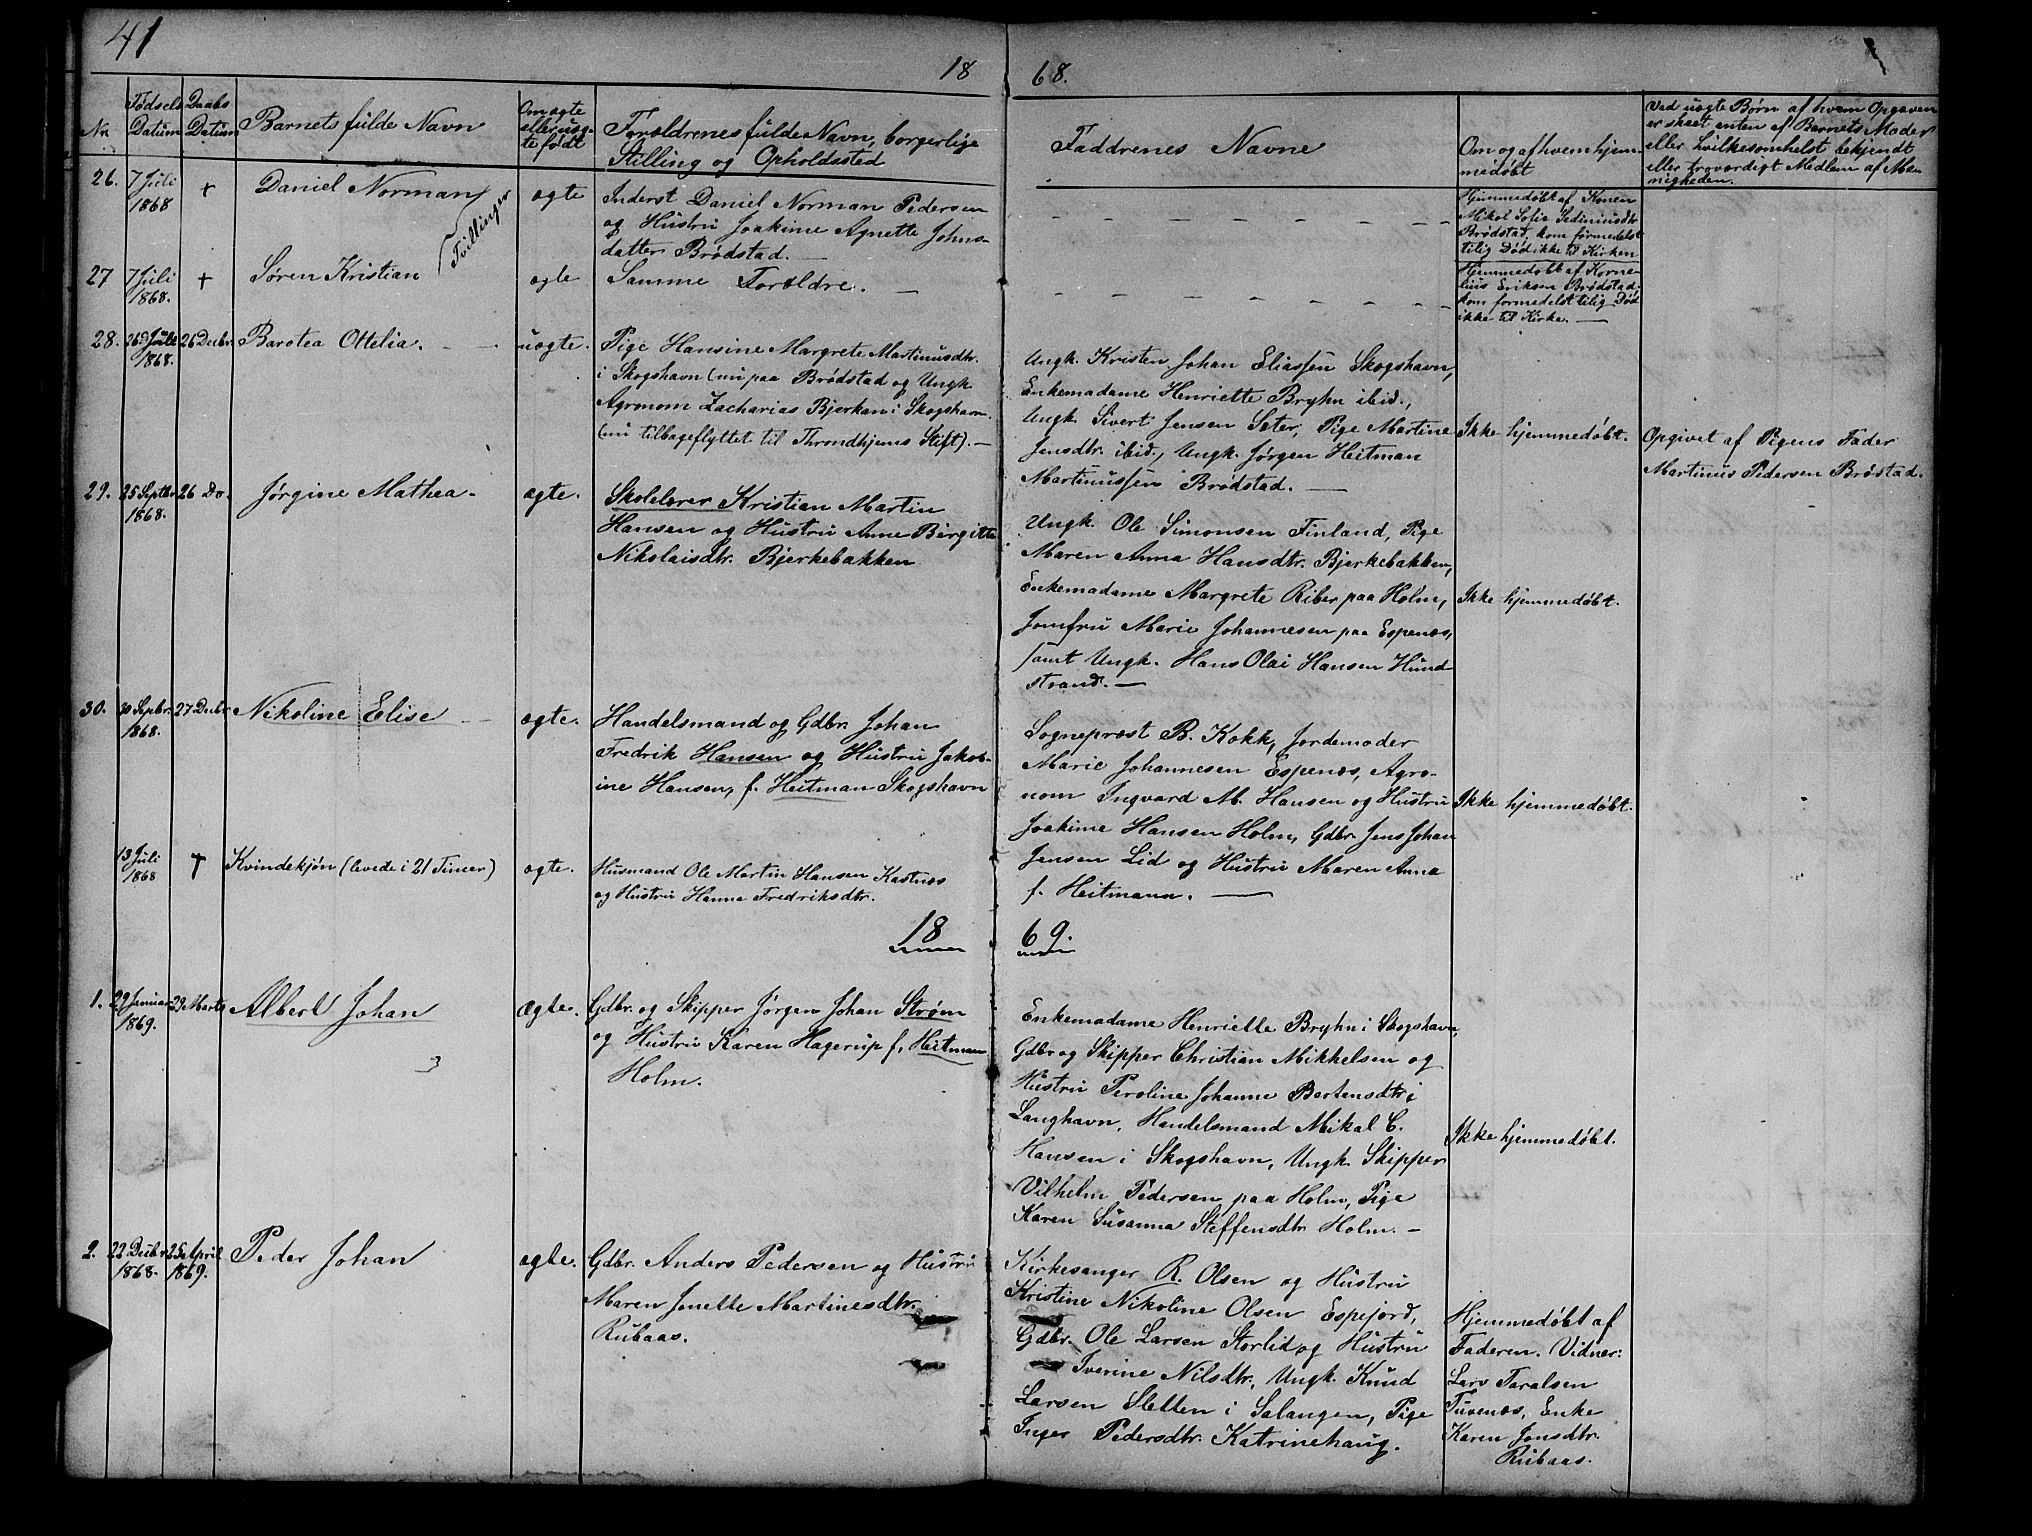 41
1868.
Nr.
Fødsels Datum
Daabs Datum
Barnets fulde Navn
Om ægte eller uægte født
Forældrenes fulde Navn, borgerlige
Stilling og Opholdssted
Faddrenes Navne
Om og af hvem hjemmedøbt
Ved uægte Børn af hvem Opgaven
er skeet enten af Barnets Moder
eller hvilkesomhelst bekjendt
eller troværdigt Medlem af Me-
nigheden.
26.
7 Juli
1868
+
Daniel Norman
Tvillinger
ægte
Inderst Daniel Norman Pedersen
og Hustru Joakime Agnette Johns-
datter Brødstad. —
Hjemmedøbt af Konen
Mikal Sofie Pediniusdtr
Brødstad, kom formedelst
tilig Død ikke til Kirken
27
7 Juli
1868.
+
Søren Kristian
ægte
Samme Forældre. —
Hjemmedøbt af Korne-
lius Eriksen Brødstad
kom formedelst tilig Død
ikke til Kirke. —
28.
26 Juli
1868.
26 Decbr.
Barotea Ottelia.
uægte.
Pige Hansine Margrete Martinusdtr.
i Skogshavn (nu paa Brødstad og Ungk.
Agronom Zacharias Bjerkan i Skogshavn
(nu tilbageflyttet til Throndhjems Stift). —
Ungk. Kristen Johan Eliassen Skogshavn,
Enkemadame Henriette Bryhn ibid.,
Ungk. Sivert Jensen Seter, Pige Martine
Jensdtr. ibid., Ungk. Jørgen Heitman
Martinussen Brødstad. —
Ikke hjemmedøbt.
Opgivet af Pigens Fader
Martinus Pedersen Brødstad.
29.
25 Septbr
1868.
26 Do.
Jørgine Mathea.
ægte.
Skolelærer Kristian Martin
Hansen og Hustru Anne Birgitte
Nikolaisdtr. Bjerkebakken
Ungk. Ole Simonsen Finland, Pige
Maren Anna Hansdtr. Bjerkebakken,
Enkemadame Margrete Riber paa Holm,
Jomfru Marie Johannesen paa Espenæs,
samt Ungk. Hans Olai Hansen Hund-
strand. —
Ikke hjemmedøbt.
30.
30 Sepbr.
1868.
27 Decbr
Nikoline Elise
ægte.
Handelsmand og Gdbr. Johan
Fredrik Hansen og Hustru Jakob-
ine Hansen, f. Heitman Skogshavn
Sognepræst B. Kokk, Jordemoder
Marie Johannesen Espenæs, Agro-
nom Ingvard M. Hansen og Hustru
Joakime Hansen Holm, Gdbr. Jens Johan
Jensen Lid og Hustru Maren Anna
f. Heitmann. —
Ikke hjemmedøbt.
13 Juli
1868
+
Kvindekjøn (levede i 21 Timer)
ægte.
Husmand Ole Martin Hansen Kastnæs
og Hustru Hanna Fredriksdtr.
1869.
1.
29 Januar
1869.
29 Marts
Albert Johan
ægte.
Gdbr. og Skipper Jørgen Johan Strøm
og Hustru Karen Hagerup f. Heitman
Holm.
Enkemadame Henriette Bryhn i Skogshavn,
Gdbr og Skipper Christian Mikkelsen og
Hustru Peroline Johanne Bertensdtr. i
Langhavn, Handelsmand Mikal C.
Hansen i Skogshavn, Ungk. Skipper
Vilhelm Pedersen paa Holm, Pige
Karen Susanna Steffensdtr Holm. —
Ikke hjemmedøbt.
2.
22 Decbr
1868.
25 April
1869.
Peder Johan
ægte.
Gdbr. Anders Pedersen og Hustru
Maren Jenette Martinesdtr.
Rubaas.
Kirkesanger R. Olsen og Hustru
Kristine Nikoline Olsen Espejord,
Gdbr. Ole Larsen Storlid og Hustru
Iverine Nilsdtr., Ungk. Knud
Larsen Sletten i Salangen, Pige
Inger Pedersdtr. Katrinehaug.
Hjemmedøbt af
Faderen. Vidner:
Lars Taralsen
Tuvenæs, Enke
Karen Jonsdtr.
Rubaas.